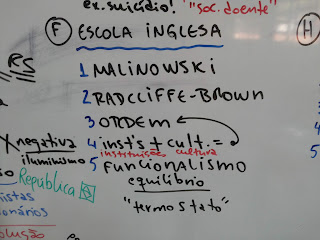 ex. suicídio! "soc. doente"
F ESCOLA INGLESA
H
RS
1 MALINOWSKI
2 RADCLIFFE-BROWN
3 ORDEM
4 insts + cult. =
instituições cultura
X negativa
iluminismo
5 FUNCIONALISMO
República
equilíbrio
"termostato"